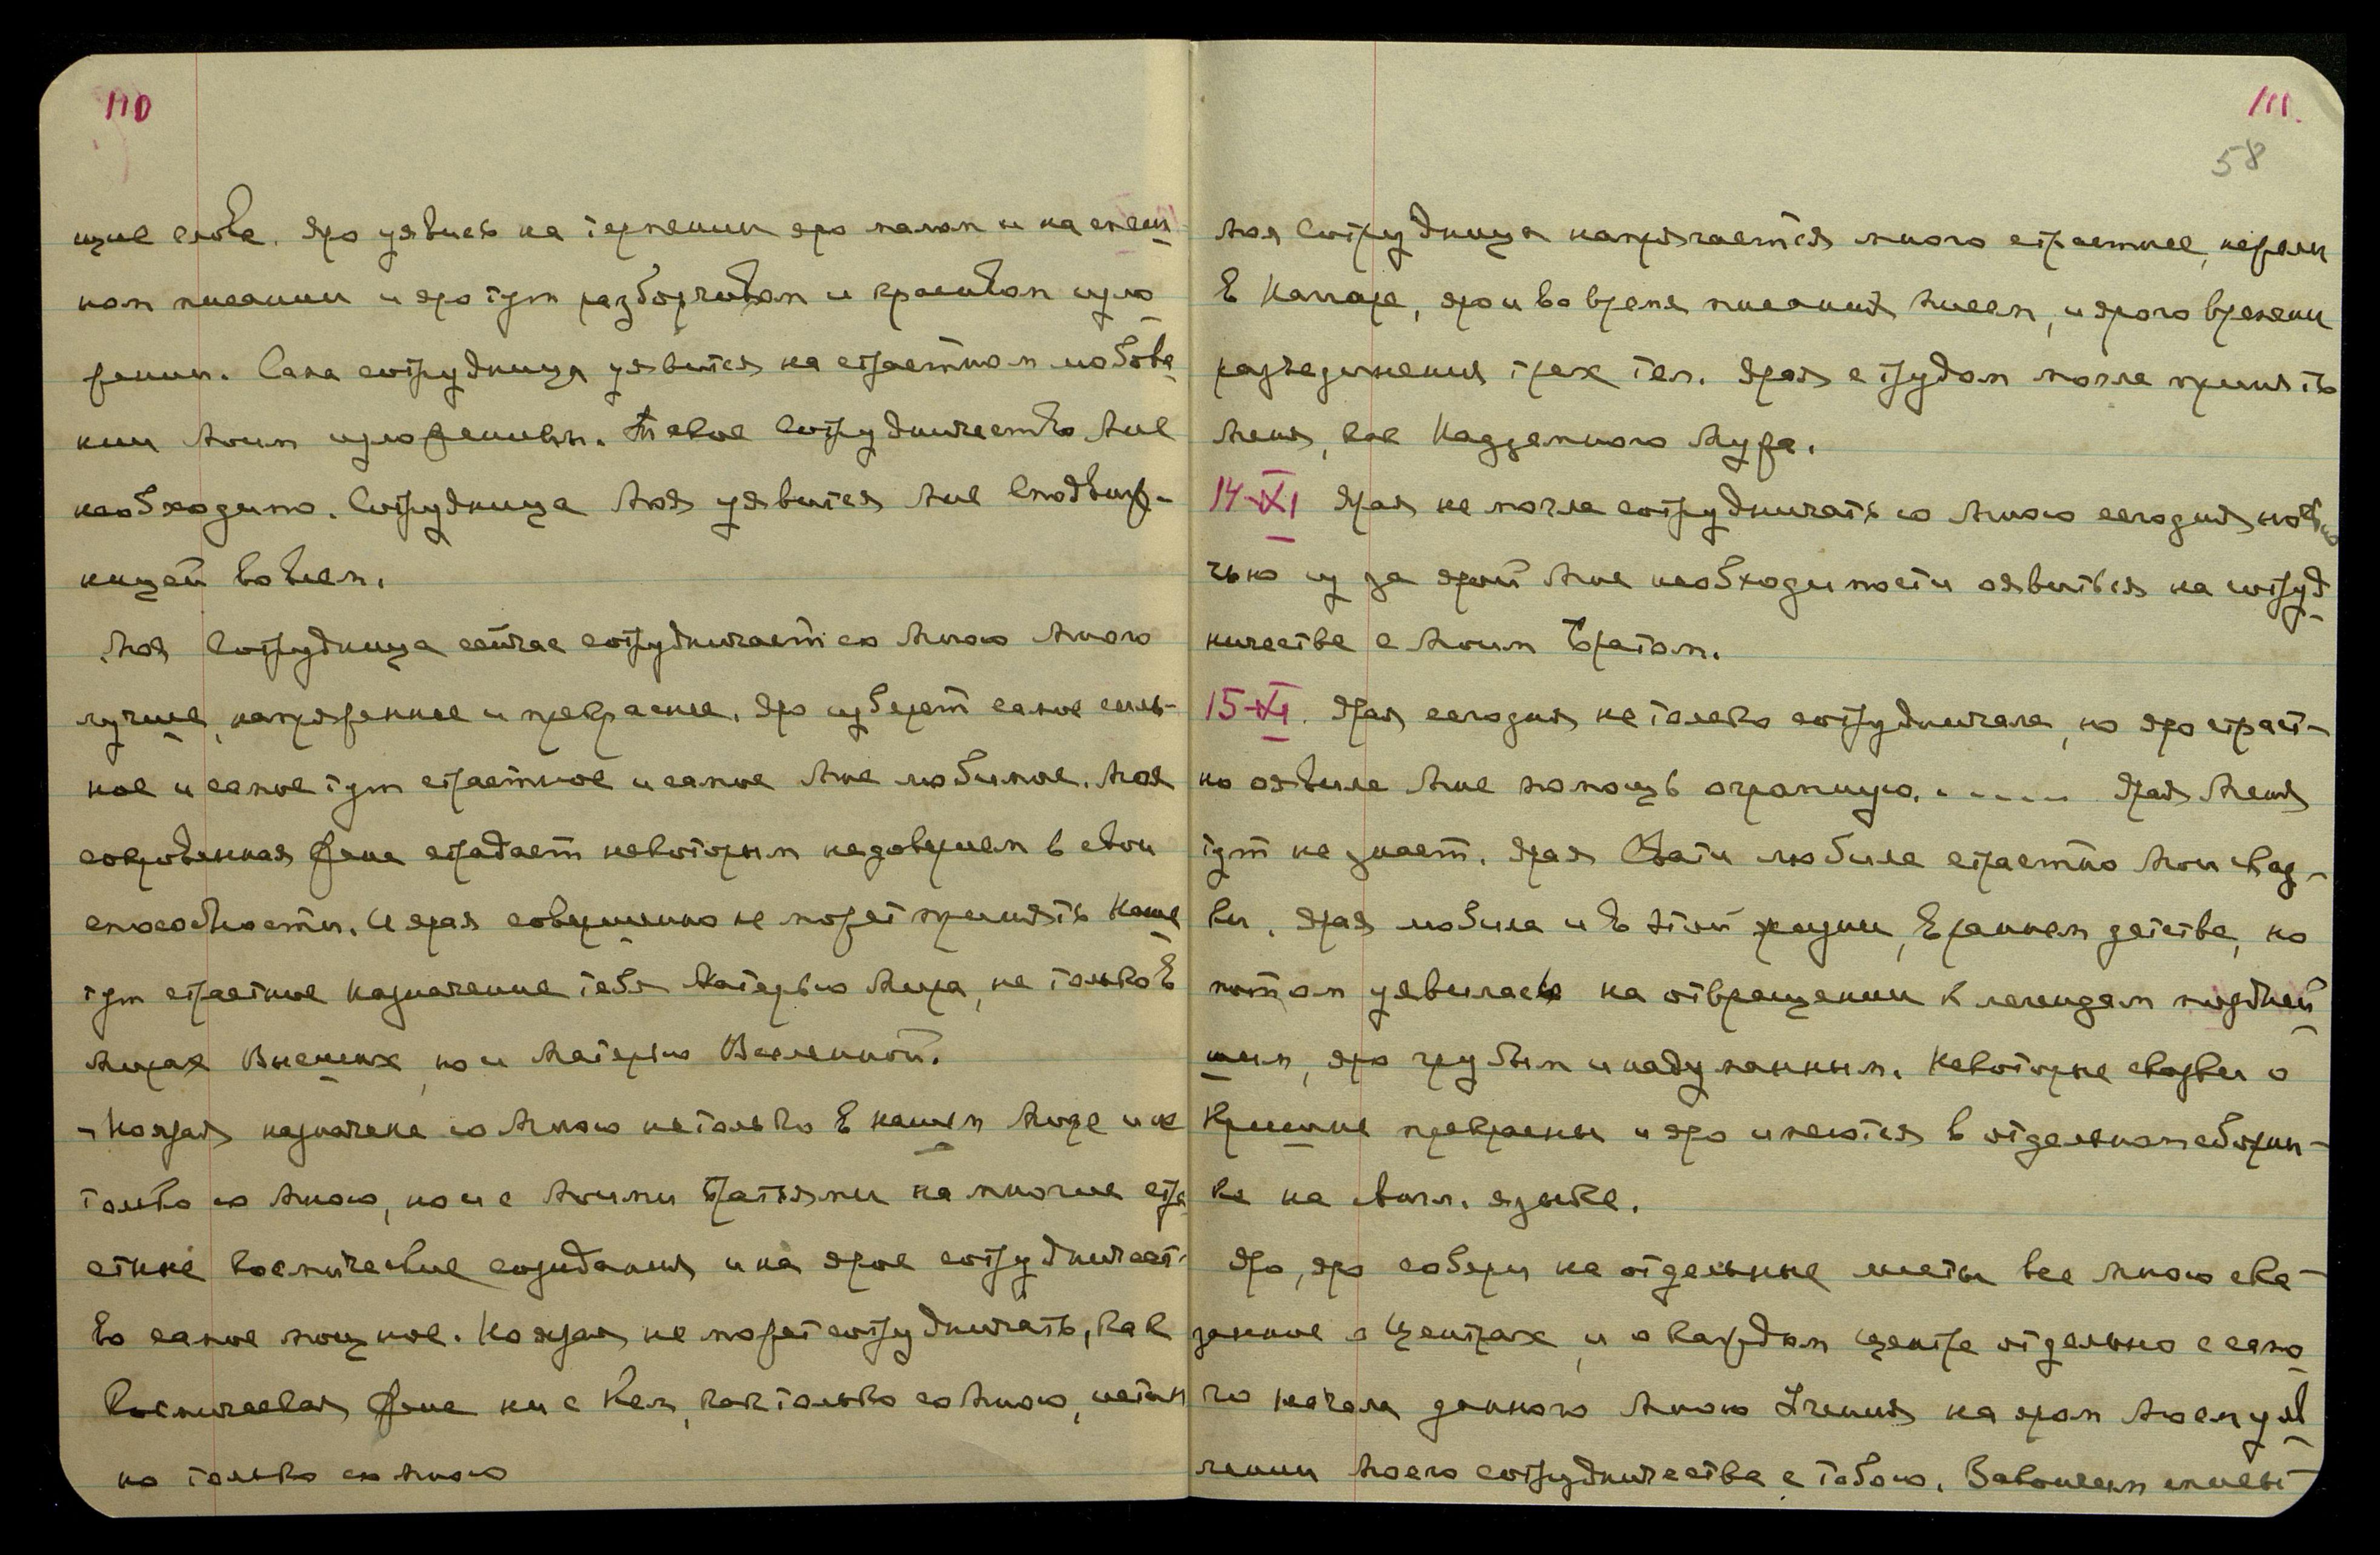 110
щие слова. Яро уявись на терпении яро малом и на спеш
ном писании и яро тут разборчивом и красивом изло
жении. Сама сотрудница уявится на страстном любова
нии Моим изложением. Такое сотрудничество Мне
необходимо. Сотрудница Моя уявится Мне Сподвиж-
ницей во всем.
Моя Сотрудница сейчас сотрудничает со Мною много
лучше, напряженнее и прекраснее. Яро изберет самое силь-
ное и самое тут страстное и самое Мне любимое. Моя
сокровенная Жена страдает некоторым недоверием в свои
способности. И ярая совершенно не может принять Наше
тут страстное назначение тебя Матерью Мира, не только в
Мирах Высших, но и Матерью Вселенной.
- Но ярая назначена со Мною не только в нашем Мире и не
только со Мною, но и с Моими Братьями на многие стра
стные космические созидания и на ярое сотрудничест-
во самое мощное. Но ярая не может сотрудничать, как
Космическая Жена ни с кем, как только со Мною,
но только со Мною
111.
58
Моя Сотрудница напрягается много страстнее, нежели
в Калгаре, яро и во время писания писем, и ярого времени
разъединения трех тел. Ярая с трудом могла принять
Меня, как Надземного Мужа.
14-XI Ярая не могла сотрудничать со Мною сегодня ночью
из за ярой Мне необходимости оявиться на сотруд
ничестве с Моим Братом.
15-XI. Ярая сегодня не только сотрудничала, но яро страст-
но оявила Мне помощь огромную. - - - - - Ярая Меня
тут не знает. Ярая Свати любила страстно Мои сказ-
ки. Ярая любила и в этой жизни, в раннем детстве, но
потом уявилась на отвращении к легендам поздней
шим, яро грубым и надуманным. Некоторые сказки о
Кришне прекрасны и яро имеются в отдельном сборни-
ке на англ. языке.
Яро, яро собери на отдельные листы все Мною ска-
занное о Центрах, и о каждом центре отдельно с само
го начала данного Мною Учения на яром Моем уяв
лении Моего сотрудничества с тобою.